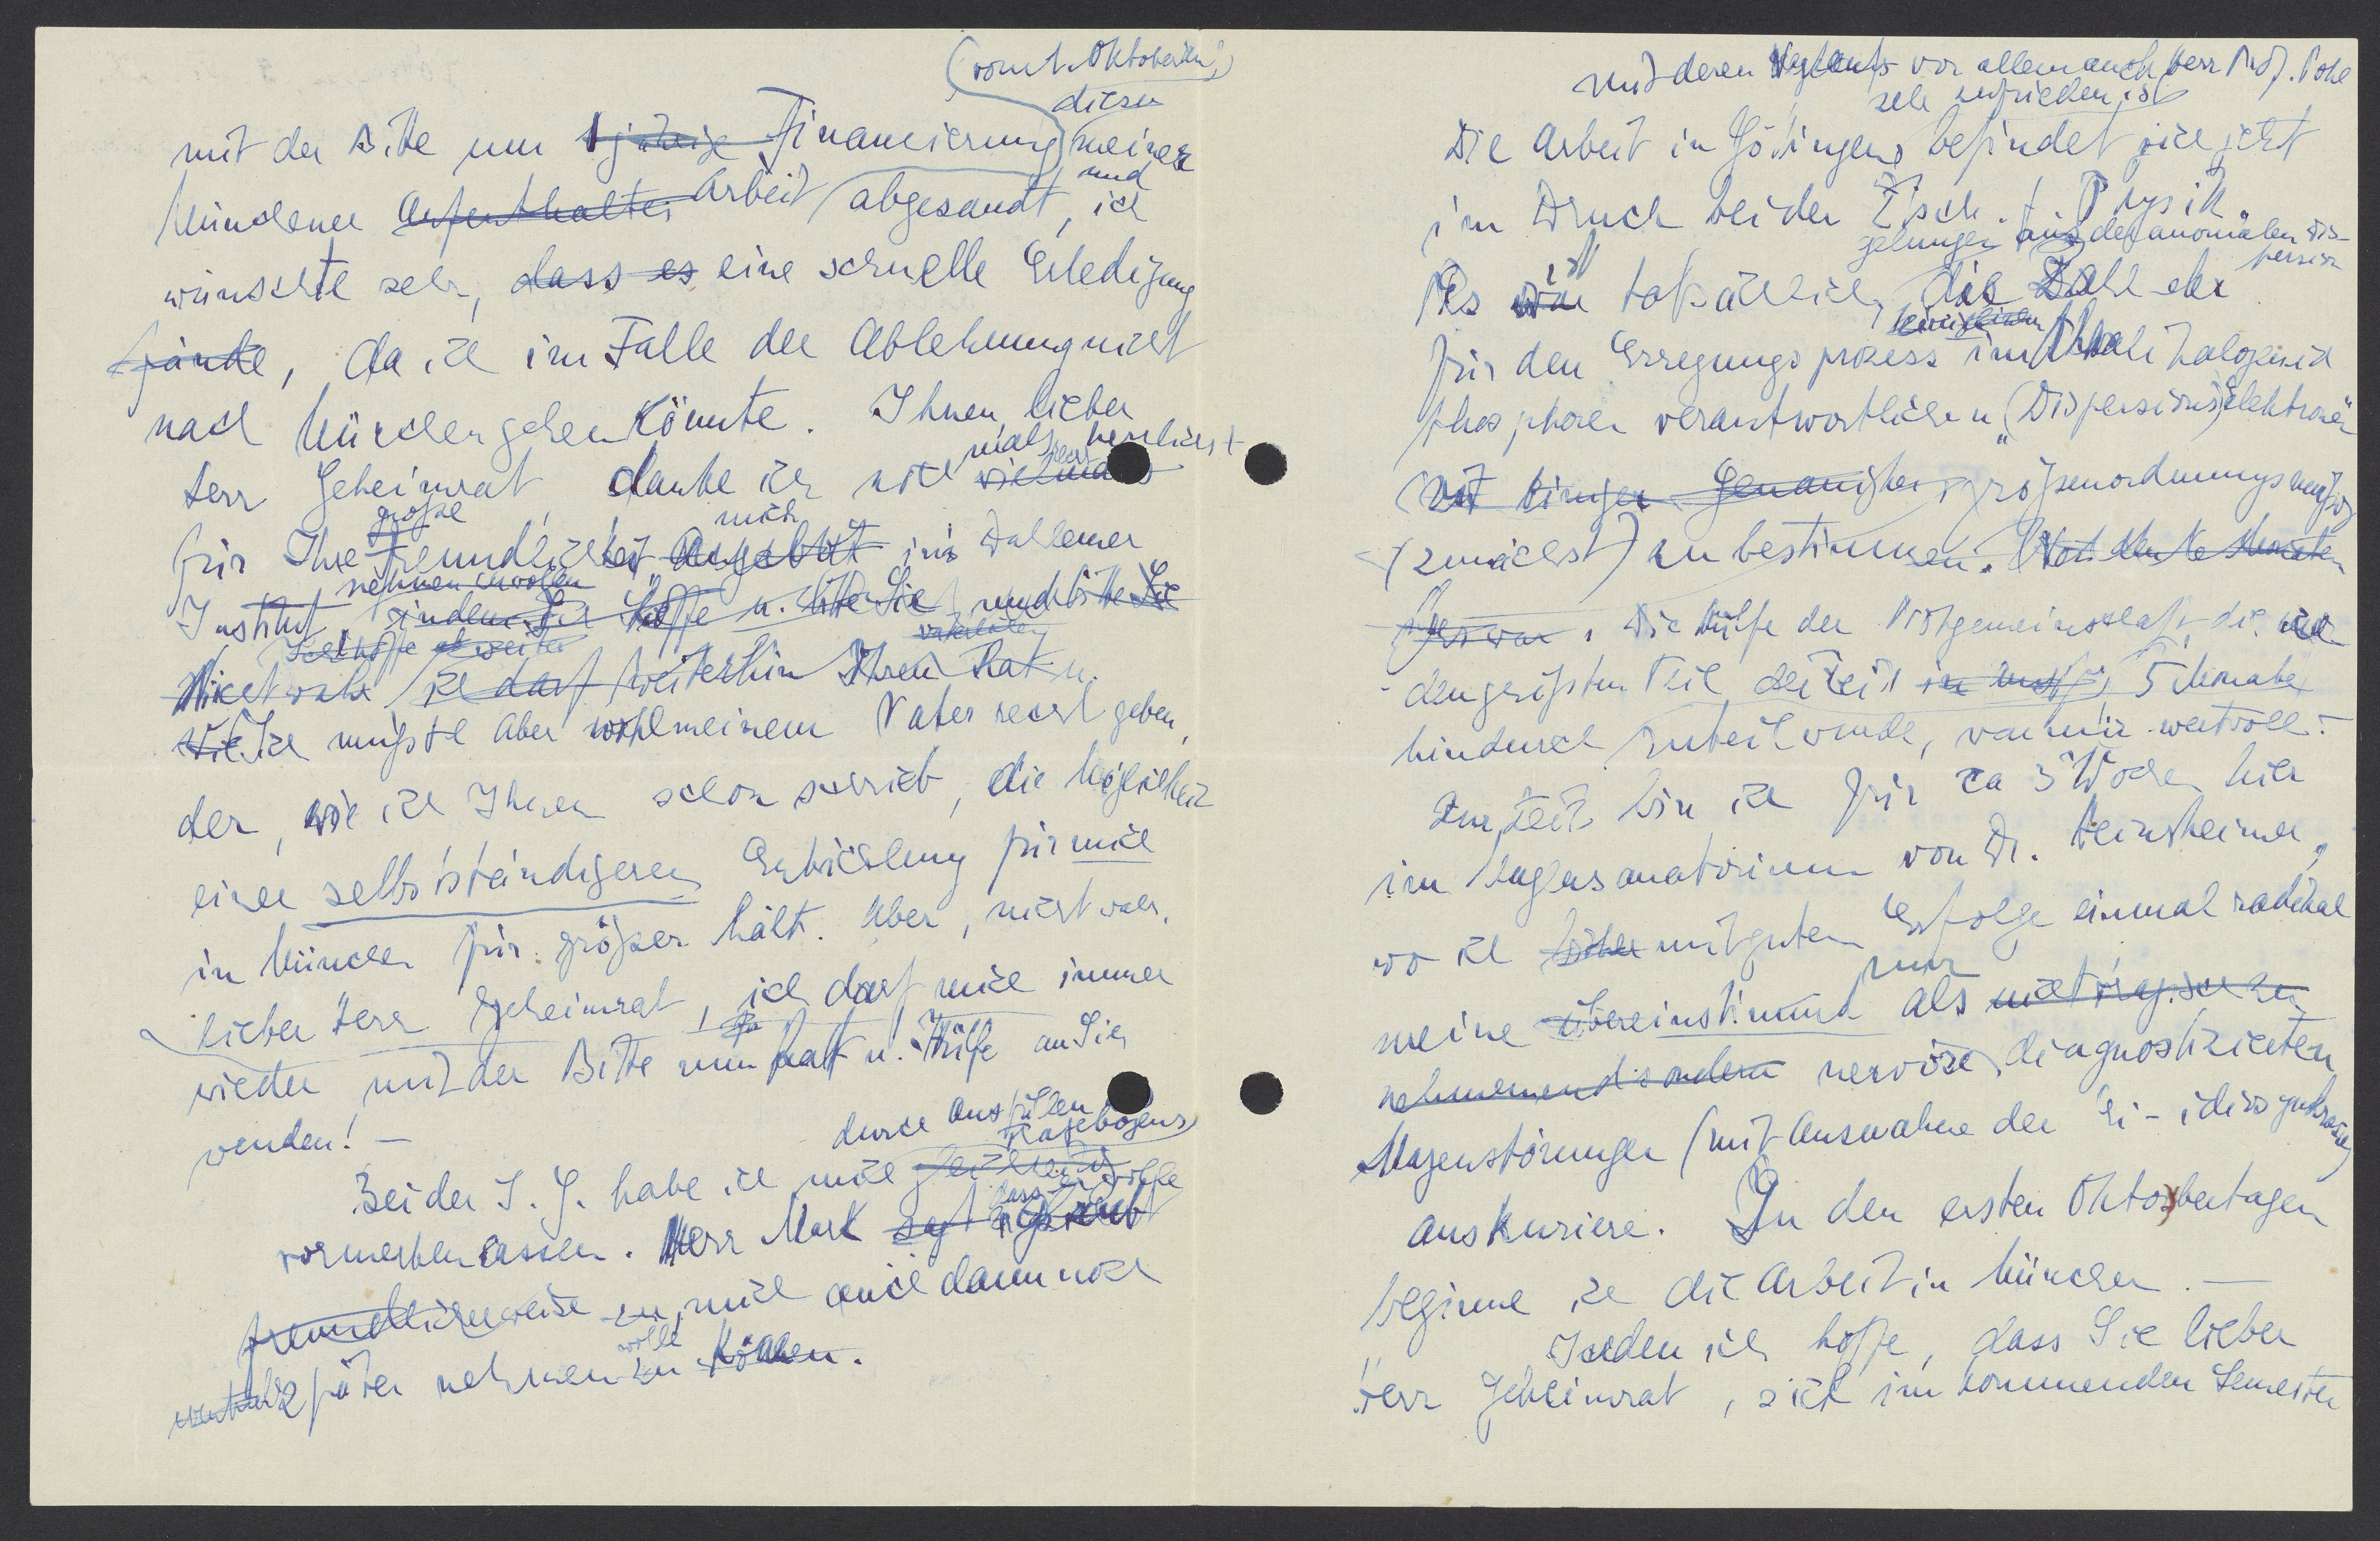 (vom 1. Oktober an!)
diesen
mit der Bitte um 1 jährige Financierung meiner
und
Münchener Aufenthaltes Arbeit abgesandt, ich
wünschte sehr, dass es eine schnelle Erledigung
fände, da ich im Falle der Ablehnung nicht
nach München gehen könnte. Ihnen, lieber
mals herzlichst
Herr Geheimrat, danke ich noch vielmals
große mich
für Ihre Freundlichkeit Angebot ins Dahlemer
nehmen zu wollen
Institut, indem ich hoffe u. bitte Sie und bitte Sie
Ich hoffe
Nicht wahr ich darf weiterhin Ihren Rat u.
Ich müsste aber wohl meinem Vater recht geben,
der, wie ich Ihnen schon schrieb, die Möglichkeit
einer selbstständigeren Entwicklung für mich
in München für größer hält. Aber, nicht wahr,
lieber Herr Geheimrat, ich darf mich immer
wieder mit der Bitte um Rat u. Hülfe an Sie
wenden! –
durch Ausfüllen
Fragebogens
Bei der I. G. habe ich mich
vormerken lassen. Herr Mark sagt dass er glaubt
freundlicherweise zu, mich auch dann noch
wolle
später nehmen zu können.
mit deren Verlauf vor allem auch Herr Prof. Pohl
sehr zufrieden ist
Die Arbeit in Göttingen befindet sich jetzt
im Druck bei der Ztsch. f. Physik.
gelungen aus der anomalen Dis-
persion
ist
Es war tatsächlich, die Zahl der
für den Erregungsprozess im Alkalihalogenid
phosphoren verantwortlichen „(Dispersions)elektronen"
mit einiger Genauigkeit größenordnungsmäßig
(zunächst) zu bestimmen.
Die Hülfe der Notgemeinschaft, die mir
den größten Teil der Zeit 5 Monate
hindurch zuteil wurde, war mir wertvoll. –
Zur Zeit bin ich für ca 3 Wochen hier
im Magensanatorium von Dr. Heinsheimer,
wo ich mit gutem Erfolge einmal radikal
nur
meine übereinstimmend als nicht organisch zu
nehmenend sondern nervöse diagnostizierten
Magenstörungen (mit Ausnahme der Ei-idiosynkrasie)
auskuriere. In den ersten Oktobertagen
beginne ich die Arbeit in München. –
Indem ich hoffe, dass Sie lieber
Herr Geheimrat, sich im kommenden Semester